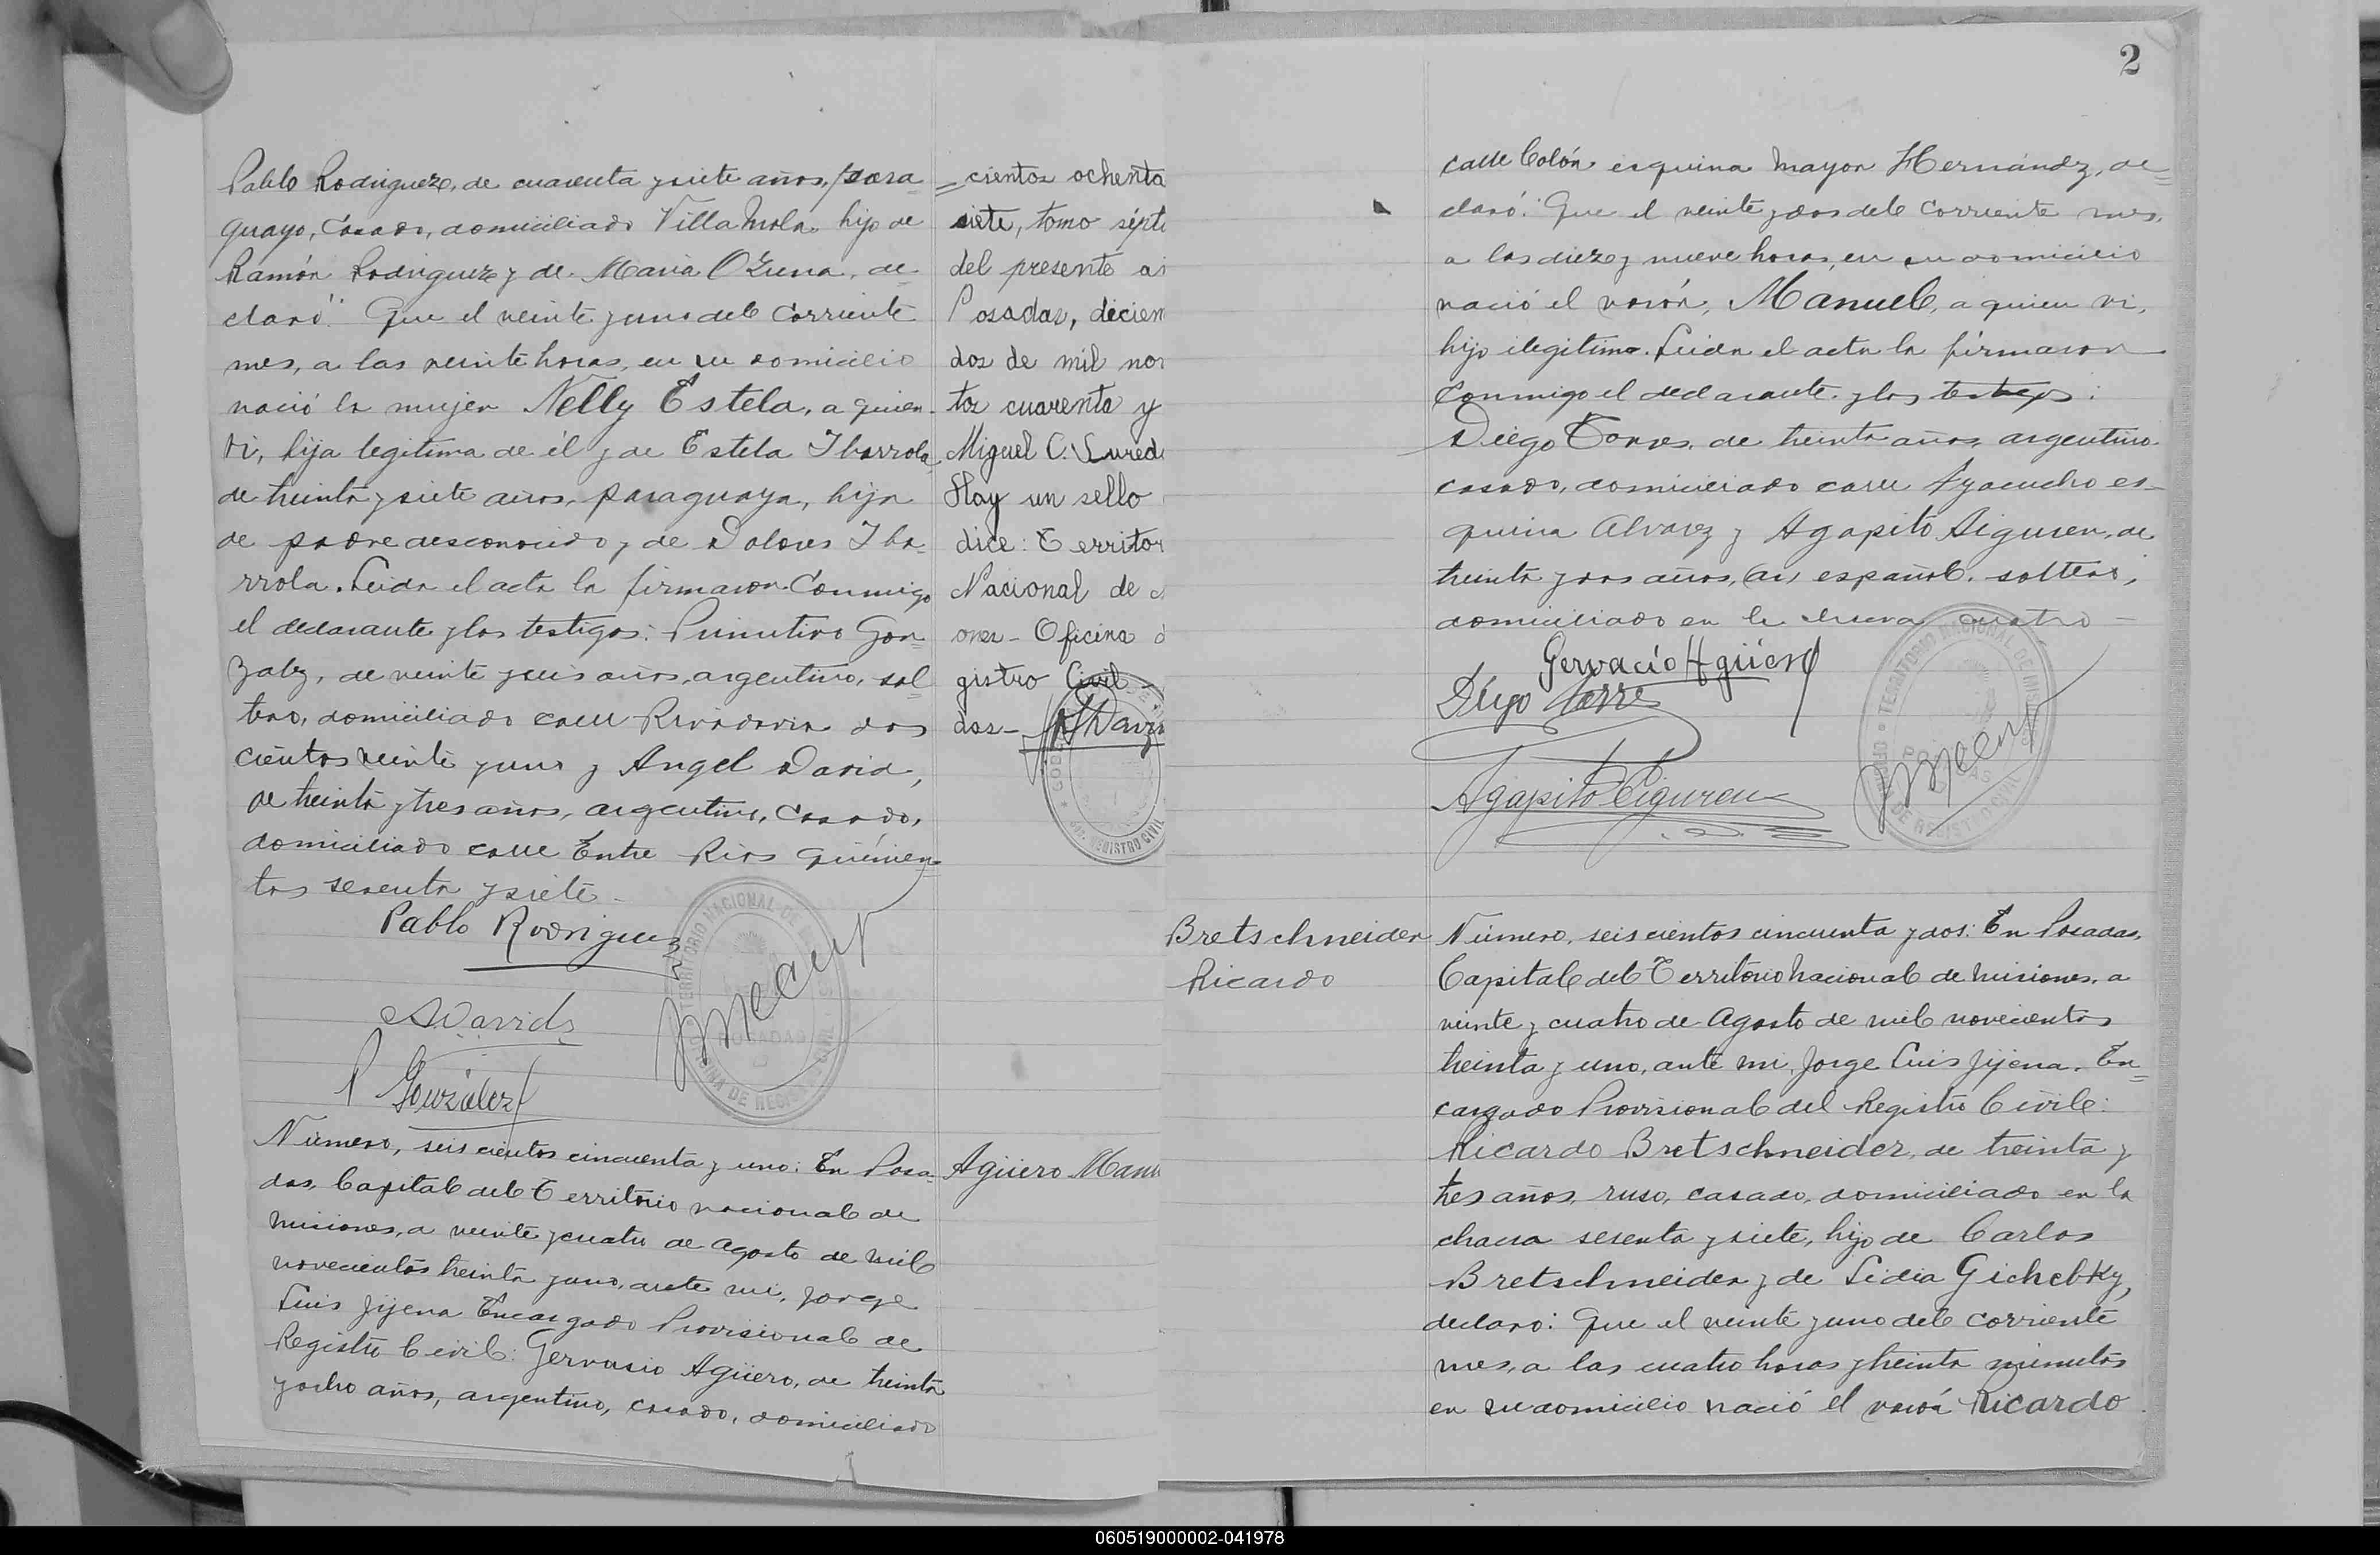 Pablo Rodriguez, de cuarenta y siete años, para-
guayo, casado, domiciliado Villa Mola, hijo de
Ramón Rodriguez y de Maria Ozuna, de-
claró: Que el veinte y uno del corriente
mes, a las veinte horas, en su domicilio
nació la mujer Nelly Estela, a quien
vi, hija legitima de él y de Estela Ibarrola,
de treinta y siete años, paraguaya, hija
de padre desconocido y de Dolores Iba-
rrola. Leida el acta la firmaron conmigo
el declarante y los testigos: Primitivo Gon-
zalez, de veinte y seis años, argentino, sol-
tero, domiciliado calle Rivadavia dos
cientos veinte y uno y Angel David,
de treinta y tres años, argentino, casado,
domiciliado calle Entre Rios quinien-
tos sesenta y siete.
Pablo Rodriguez
ADavid
P González
Número, seis cientos cincuenta y uno: En Posa-
das, Capital del Territorio nacional de
Misiones, a veinte y cuatro de Agosto de mil
novecientos treinta y uno, ante mi, Jorge
Luis Jijena Encargado Provisional de
Registro Civil: Gervasio Agüero, de treinta
y ocho años, argentino, casado, domiciliado
=cientos ochenta
siete, tomo sépti
del presente a
Posadas, diciem
dos de mil no
tos cuarenta y
Miguel C.
Hay un sello
dice: Territor
Nacional de
ones - Oficina d
gistro Civil -
das -
REGISTRO CIVIL
Agüero Manu
2
calle Colón esquina Mayor Hernández, de=
claró: Que el veinte y dos del corriente mes,
a las diez y nueve horas, en su domicilio
nació el varón, Manuel, a quien vi,
hijo ilegitimo. Leida el acta la firmaron
conmigo el declarante y los testigos:
Diego Torres, de treinta años, argentino
casado, domiciliado calle Ayacucho es-
quina Alvarez y Agapito Siguren, de
treinta y dos años, (a) español, soltero,
domiciliado en la chacra cuatro -
Gervacio Agüero
Diego Torre
Agapito Ciguren
TERRITORIO NACIONAL DE MISIONES
POSADAS
Bretschneider
Ricardo
Número, seis cientos cincuenta y dos: En Posadas,
Capital del Territorio nacional de Misiones, a
veinte y cuatro de Agosto de mil novecientos
treinta y uno, ante mi, Jorge Luis Jijena, En=
cargado Provisional del Registro Civil:
Ricardo Bretschneider, de treinta y
tres años, ruso, casado, domiciliado en la
chacra sesenta y siete, hijo de Carlos
Bretschneider y de Lidia Gichebky,
declaro: Que el veinte y uno del corriente
mes, a las cuatro horas y treinta minutos
en su domicilio nació el varón Ricardo
060519000002-041978